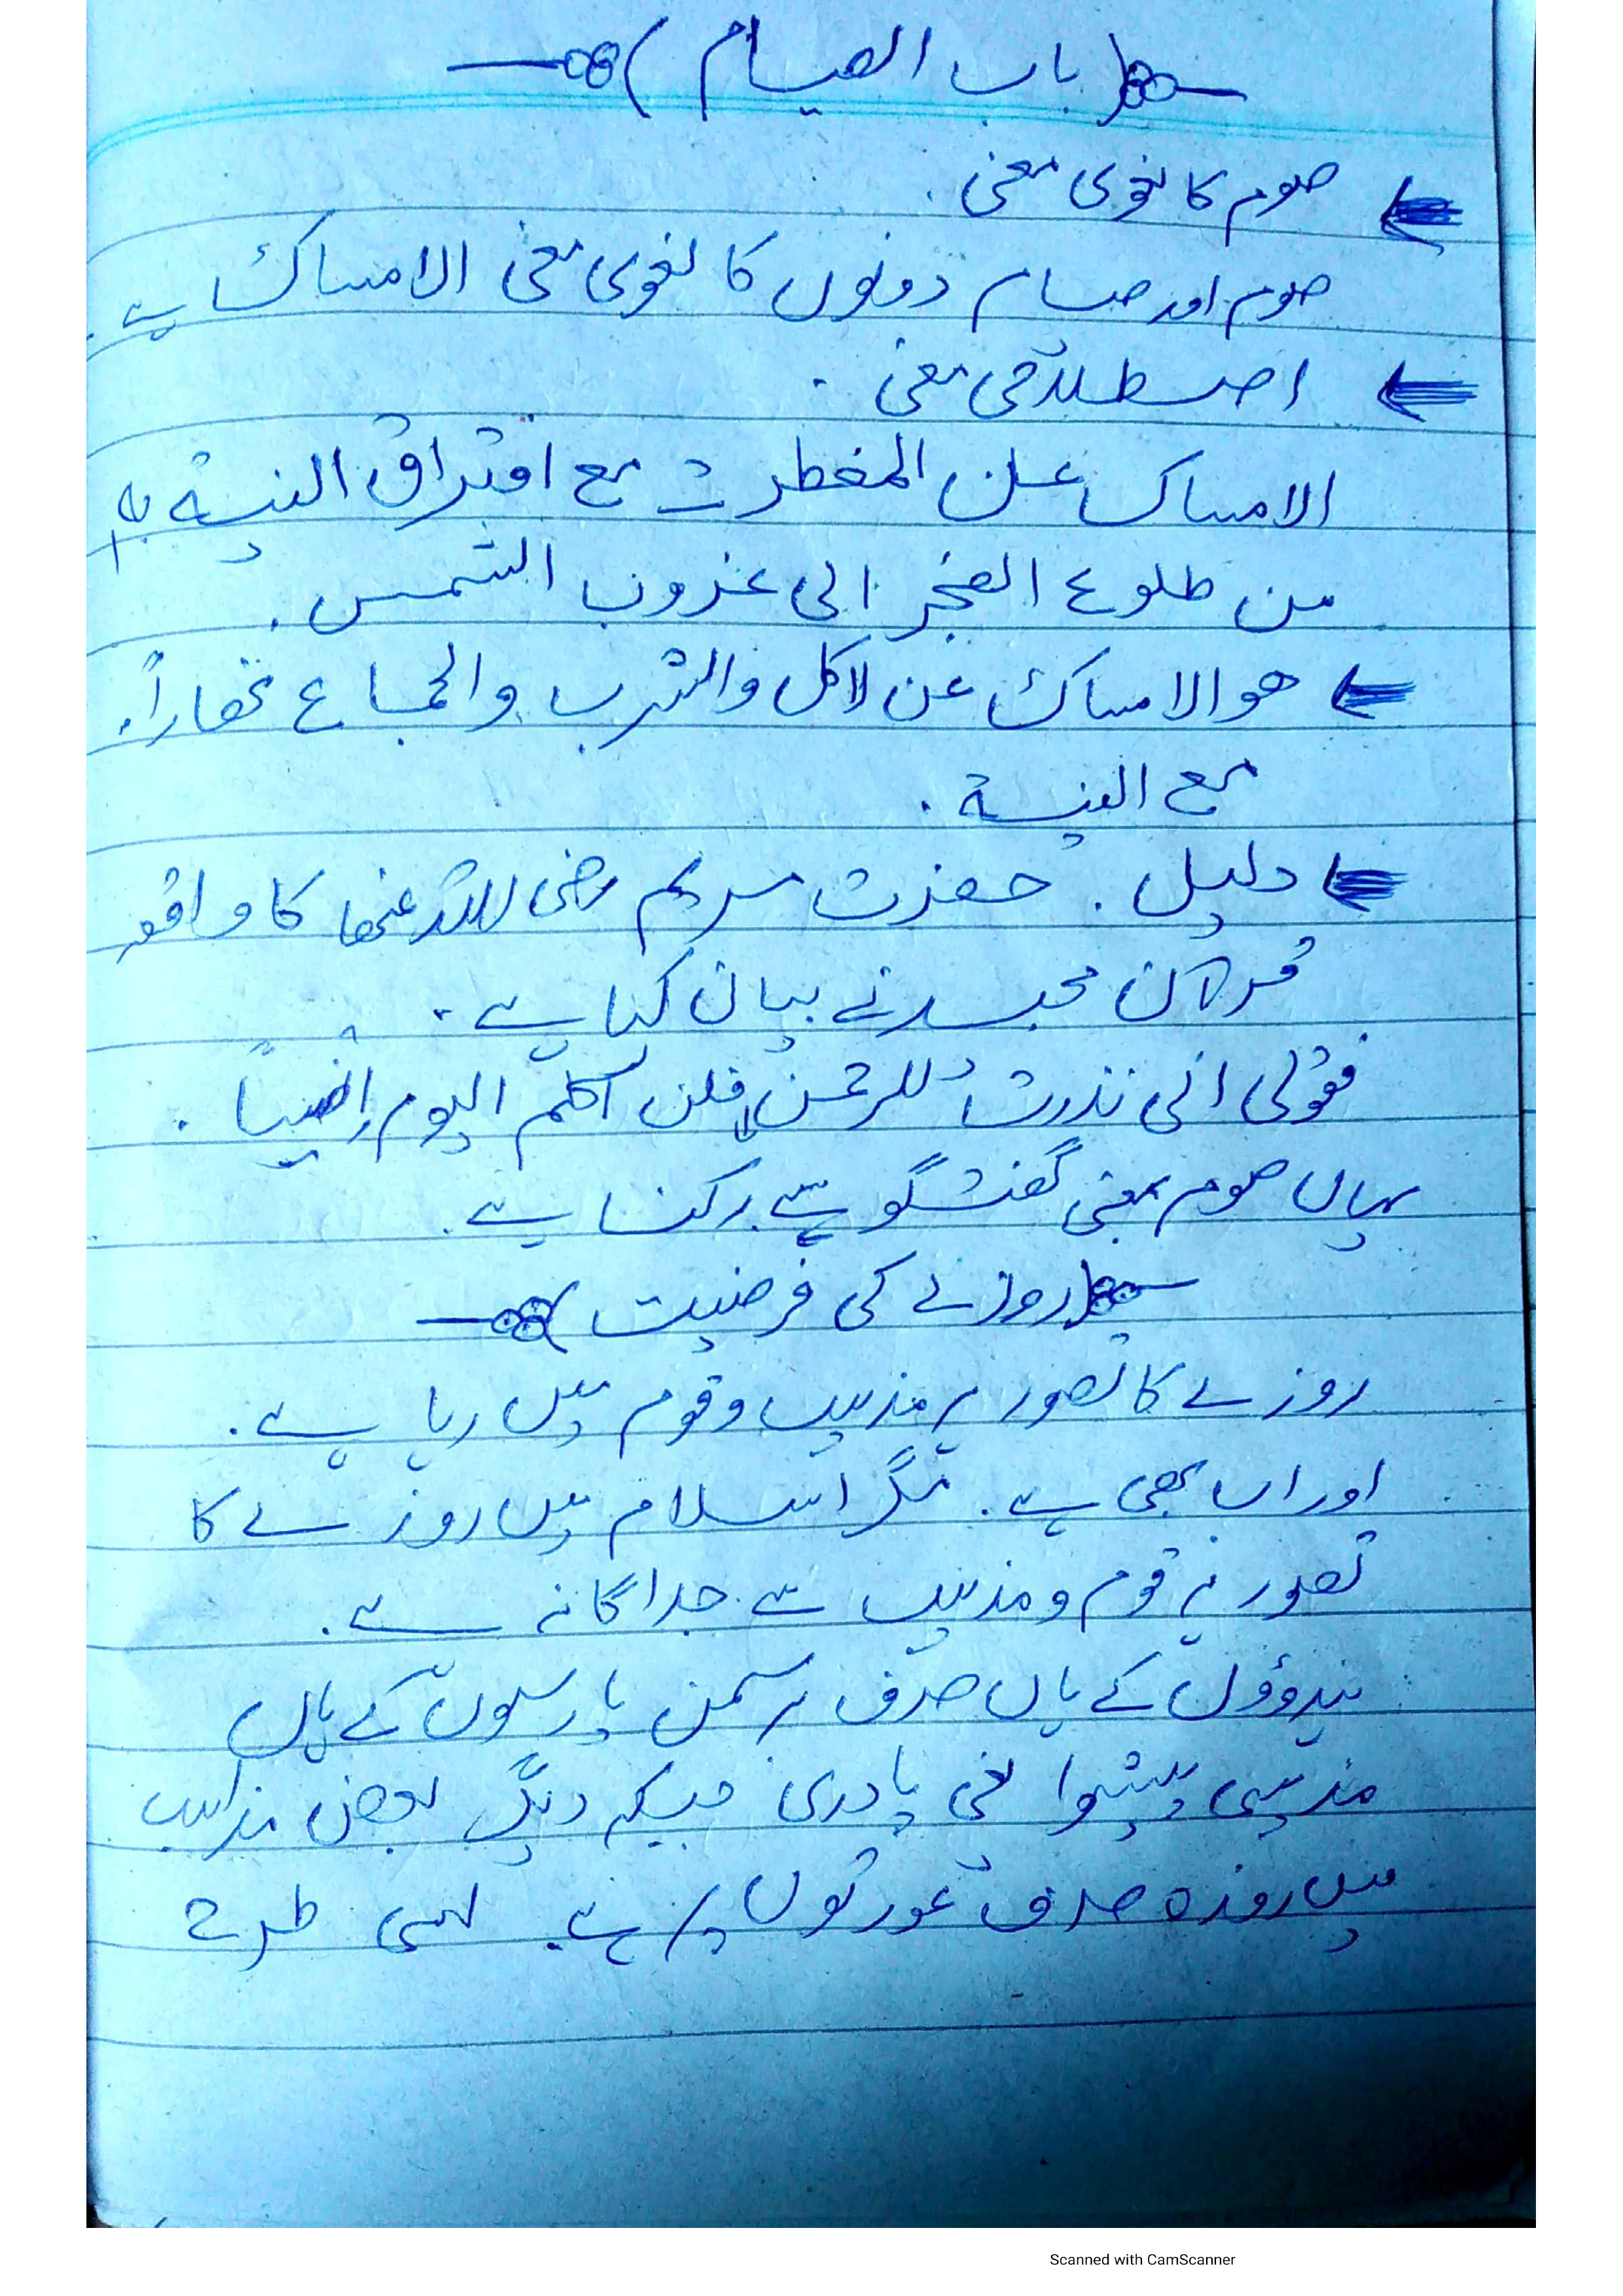 (باب الصیام)
صوم کا لغوی معنی .
صوم اور صیام دونوں کا لغوی معنی الامساک ہے .
اصطلاحی معنی .
الامساک عن المفطرت مع اقتراق النیۃ بہ
من طلوع الفجر الی غروب الشمس .
ھو الامساک عن لاکل والشرب والجماع نھاراً .
مع النیۃ .
دلیل . حضرت مریم رضی اللہ عنھا کا واقعہ
قرآن مجید نے بیان کیا ہے .
فقولی انی نذرت للرحمن فلن اکلم الیوم إنسیاً .
یہاں صوم بمعنی گفتگو سے رکنا ہے .
(روزے کی فرضیت)
روزے کا تصور ہر مذہب و قوم میں رہا ہے .
اور اب بھی ہے . مگر اسلام میں روزے کا
تصور ہر قوم و مذہب سے جداگانہ ہے .
ہندوؤں کے ہاں صرف برہمن پارسیوں کے ہاں
مذہبی پیشوا یعنی پادری جبکہ دیگر بعض مذاہب
میں روزہ صرف عورتوں پر ہے . اسی طرح
Scanned with CamScanner